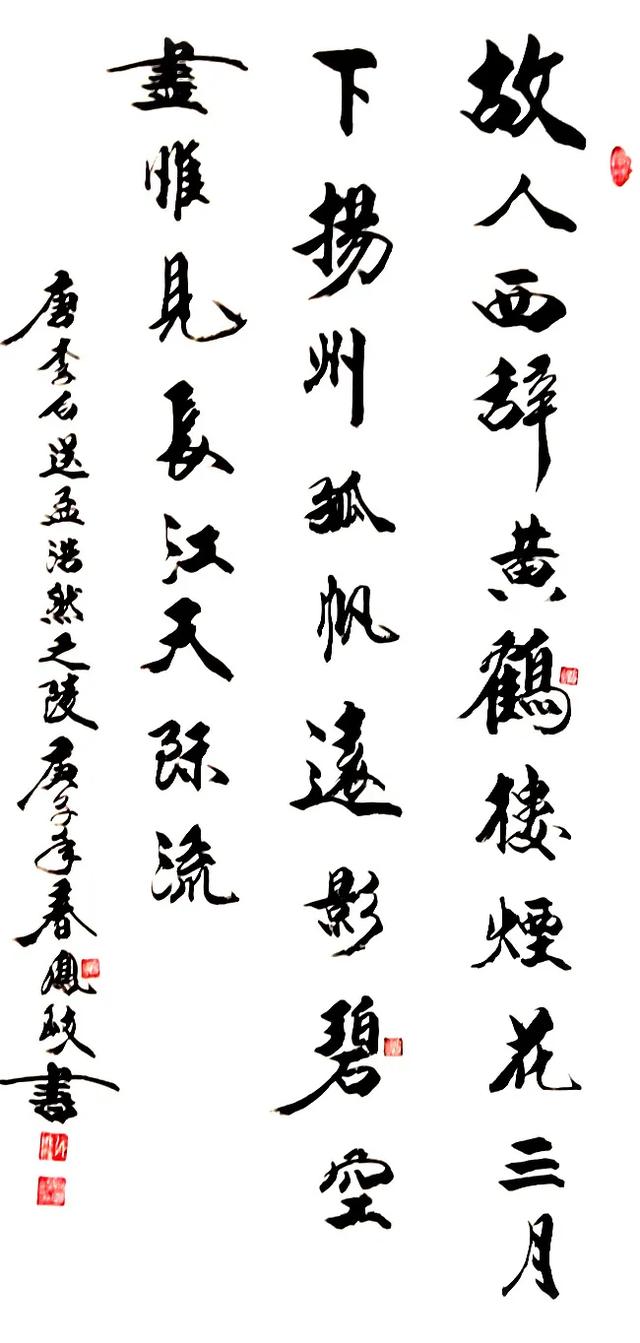 故人西辞黄鶴楼煙花三月
下揚州孤帆遠影碧空
盡唯見長江天際流
唐李白送孟浩然之陵庚子年春鳳歧書